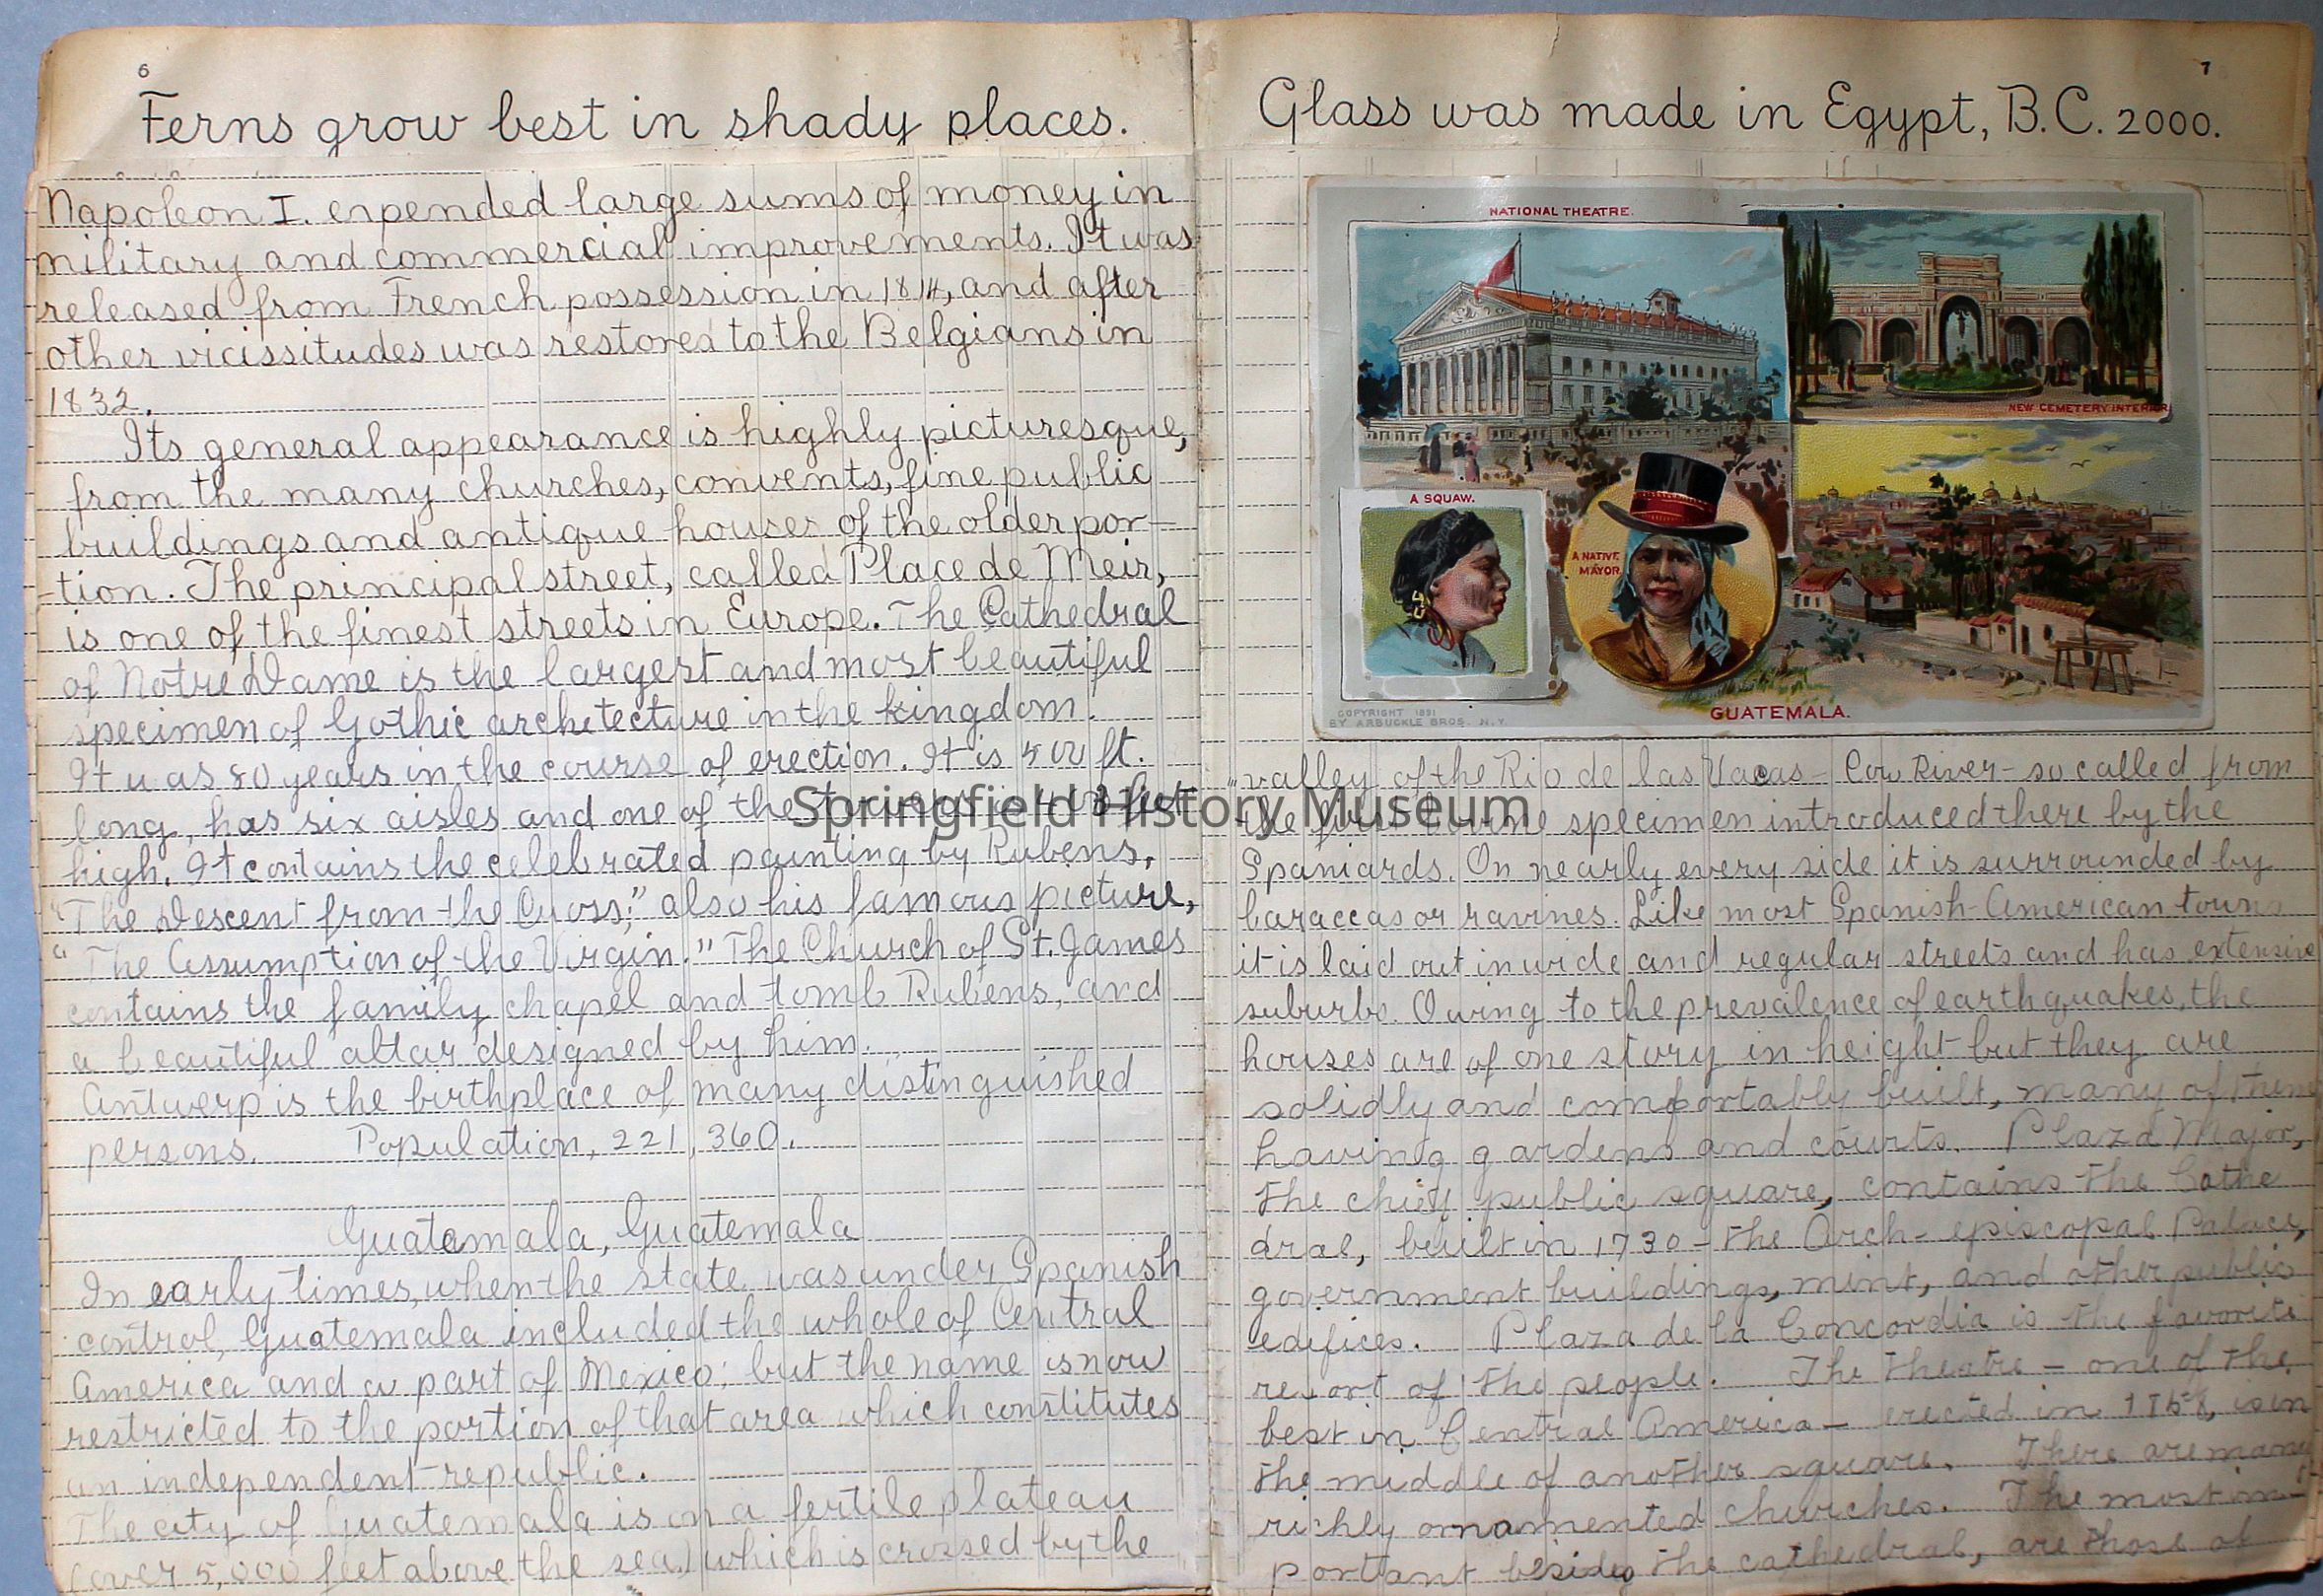 6
Ferns grow best in shady places.
Napoleon I. expended large sums of money in
military and commercial improvements. It was
released from French possession in 1814, and after
other vicissitudes was restored to the Belgians in
1832.
Its general appearance is highly picturesque,
from the many churches, convents, fine public
buildings and antique houses of the older por-
-tion. The principal street, called Place de Meir,
is one of the finest streets in Europe. The Cathedral
of Notre Dame is the largest and most beautiful
specimen of Gothic architecture in the kingdom.
It was 80 years in the course of erection. It is 500 ft.
long, has six aisles and one of the
high. It contains the celebrated painting by Rubens,
"The Descent from the Cross;" also his famous picture,
"The Assumption of the Virgin." The Church of St. James
contains the family chapel and tomb Rubens, and
a beautiful altar designed by him.
Antwerp is the birthplace of many distinguished
persons. Population, 221,360.
Guatemala, Guatemala
In early times, when the state was under Spanish
control, Guatemala included the whole of Central
America and a part of Mexico; but the name is now
restricted to the portion of that area which constitutes
an independent republic.
The city of Guatemala is on a fertile plateau
(over 5,000 feet above the sea) which is crossed by the
7
Glass was made in Egypt, B.C. 2000.
NATIONAL THEATRE.
NEW CEMETERY INTERIOR
A SQUAW.
A NATIVE
MAYOR.
COPYRIGHT 1891
BY ARBUCKLE BROS. N.Y.
GUATEMALA.
valley of the Rio de las Vacas - Cow River - so called from
the first bovine specimen introduced there by the
Spaniards. On nearly every side it is surrounded by
baraccas or ravines. Like most Spanish-American towns
it is laid out in wide and regular streets and has extensive
suburbs. Owing to the prevalence of earthquakes, the
houses are of one story in height but they are
solidly and comfortably built, many of them
having gardens and courts. Plaza Major,
the chief public square, contains the Cathe
dral, built in 1730 - the Arch-episcopal Palace,
government buildings, mint, and other public
edifices. Plaza de la Concordia is the favorite
resort of the people. The theatre - one of the
best in Central America - erected in 1858, is in
the middle of another square. There are many
richly ornamented churches. The most im-
portant besides the cathedral, are those of
Springfield History Museum